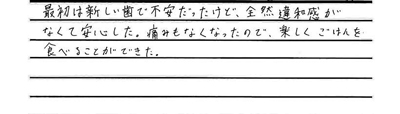 最初は新しい歯で不安だったけど、全然違和感が
なくて安心した。痛みもなくなったので、楽しくごはんを
食べることができた。